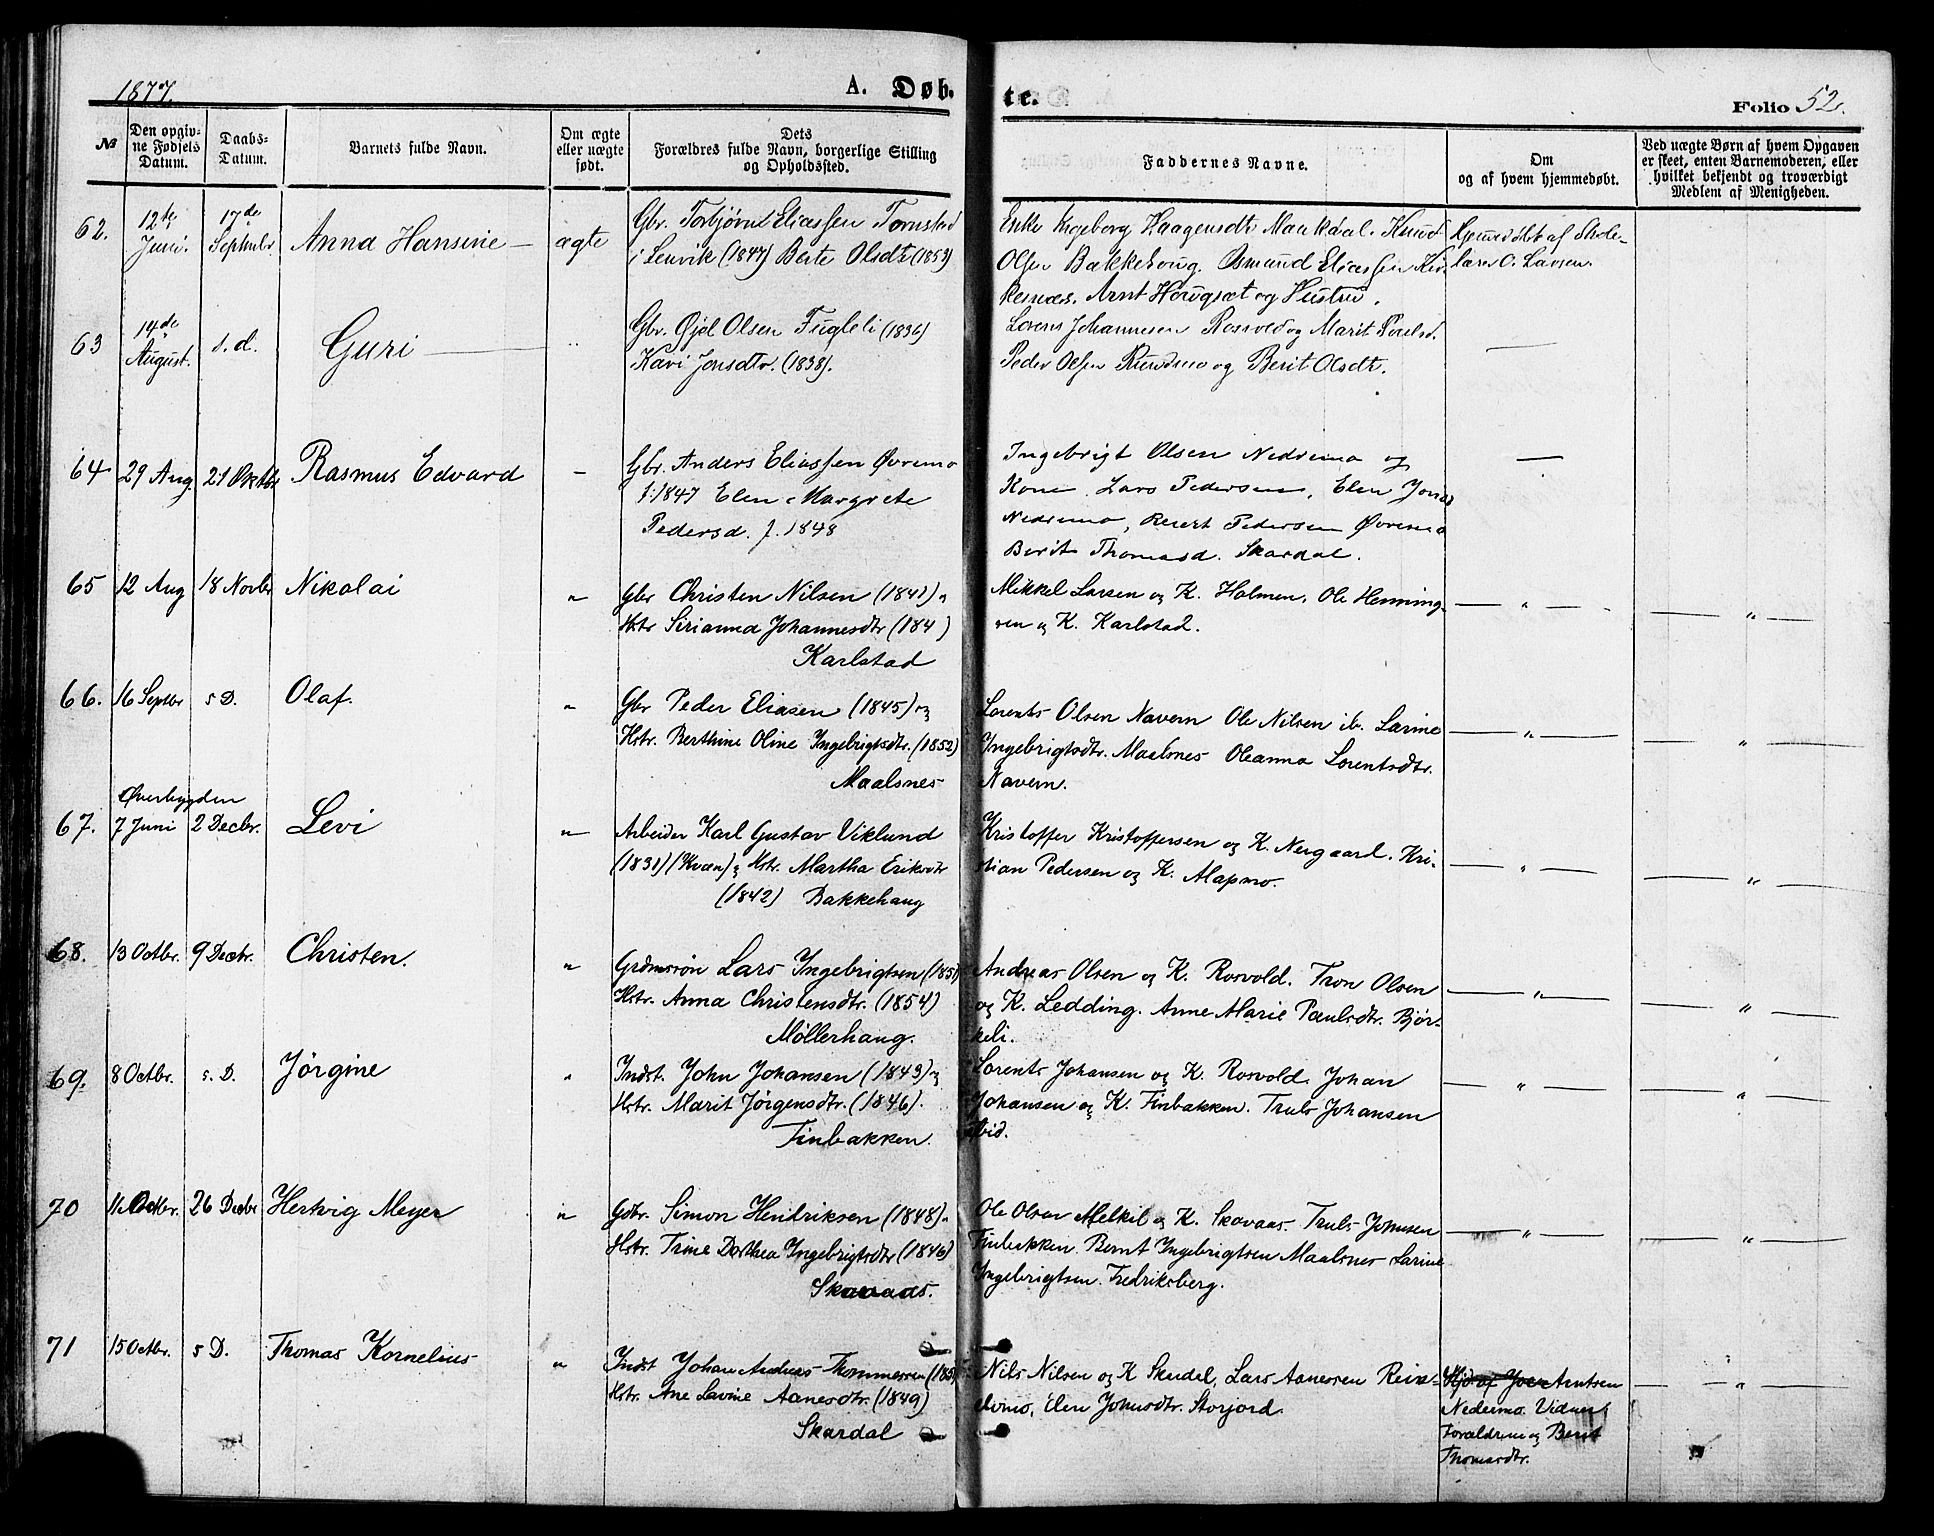 1877.
A. Døb.
te.
Folio 52.
№
Den opgiv-
ne Fødsels
Datum.
Daabs-
Datum.
Barnets fulde Navn.
Om ægte
eller uægte
født.
Dets
Forældres fulde Navn, borgerlige Stilling
og Opholdssted.
Faddernes Navne.
Om
og af hvem hjemmedøbt.
Ved uægte Børn af hvem Opgaven
er skeet, enten Barnemoderen, eller
hvilket bekjendt og troværdigt
Medlem af Menigheden.
62.
12te
Juni.
17de
Septmbr
Anna Hansine
ægte
Gbr. Torbjørn Eliassen
i Lenvik (1847) Berte Olsdtr (1853)
Enke Ingeborg Haagensdtr Knud
Olsen Bakkehoug. Osmund Eliassen
Arnt Hougsæt og Hustru.
Hjemmedøbt af Skole-
lærer O. Larsen.
63
14de
August.
s. d.
Guri
Gbr. Ojel Olsen Fugleli (1836)
Kari Jonsdtr. (1838).
Lorens Johannesen Rossvold og Marit
Peder Olsen og Berit Olsdtr.
64
29 Aug.
21 Oktbr
Rasmus Edvard
–
Gbr. Anders Eliassen Øvremo
f. 1847 Elen Margrete
Pedersd. f. 1848
Ingebrigt Olsen Nedremo og
Kone. Lars Pedersen, Elen
Nedremo, Pedersen Øvremo
Berit Thomasd. Skardal.
65
12 Aug
18 Novbr
Nikolai
"
Gbr Christen Nilsen (1841) &
Hstr Serianna Johannesdtr (184 )
Karlstad
Mikkel Larsen og K. Holmen, Ole Henning-
sen og K. Karlstad.
"
"
66.
16 Septbr
s D.
Olaf.
"
Gbr Peder Eliasen (1845) og
Hstr. Berthine Oline Ingebrigtsdtr. (1852)
Maalsnes
Lorents Olsen Navern Ole Nilsen ib. Larine
Ingebrigtsdtr. Maalsnes Oleanna Lorentsdtr.
Navern.
"
"
67.
Øverbygden
7 Juni
2 Decbr.
Levi
"
Arbeider Karl Gustav Viklund
(1831) (Kvæn) og Hstr. Martha Eriksdtr
(1842) Bakkehaug
Kristoffer Kristoffersen og K. Nergaard. Kri-
stian Pedersen og K. Alapmo.
"
"
68.
13 Octbr.
9 Decbr.
Christen.
"
Lars Ingebrigtsen (1851)
Hstr. Anna Christensdtr. (1854)
Møllerhaug.
Andreas Olsen og K. Rosvold. Tron Olsen
og K. Ledding. Anne Marie Paulsdtr. Bjør-
keli.
"
"
69.
8 Octbr.
s. D.
Jørgine
"
Indst. John Johansen (1843) og
Hstr. Marit Jørgensdtr. (1846).
Finbakken.
Lorents Johansen og K. Rosvold. Johan
Johansen og K. Finbakken. Truls Johansen
ibid.
"
"
70
11 Octbr.
26 Decbr
Hertvig Meyer
"
Gbr. Simon Hendriksen (1848) &
Hstr. Trine Dorthea Ingebrigtsdtr (1846)
Skavaas.
Ole Olsen Melkil og K. Skavaas. Truls Johnsen
Finbakken. Bernt Ingebrigtsen Maalsnes Larine
Ingebrigtsen. Fredriksberg.
"
"
71
15 Octbr.
s D.
Thomas Kornelius
"
Indst Johan Andreas Thommessen
Hstr. Ane Lavine Aanesdtr. (1849)
Skardal
Nils Nilsen og K Skardal, Lars Aanessen
Elen Johnsdtr. Storjord.
Hjd. af Arntsen
Nedermo. Vidner
Forældrene og Berit
Thomasdtr.
"